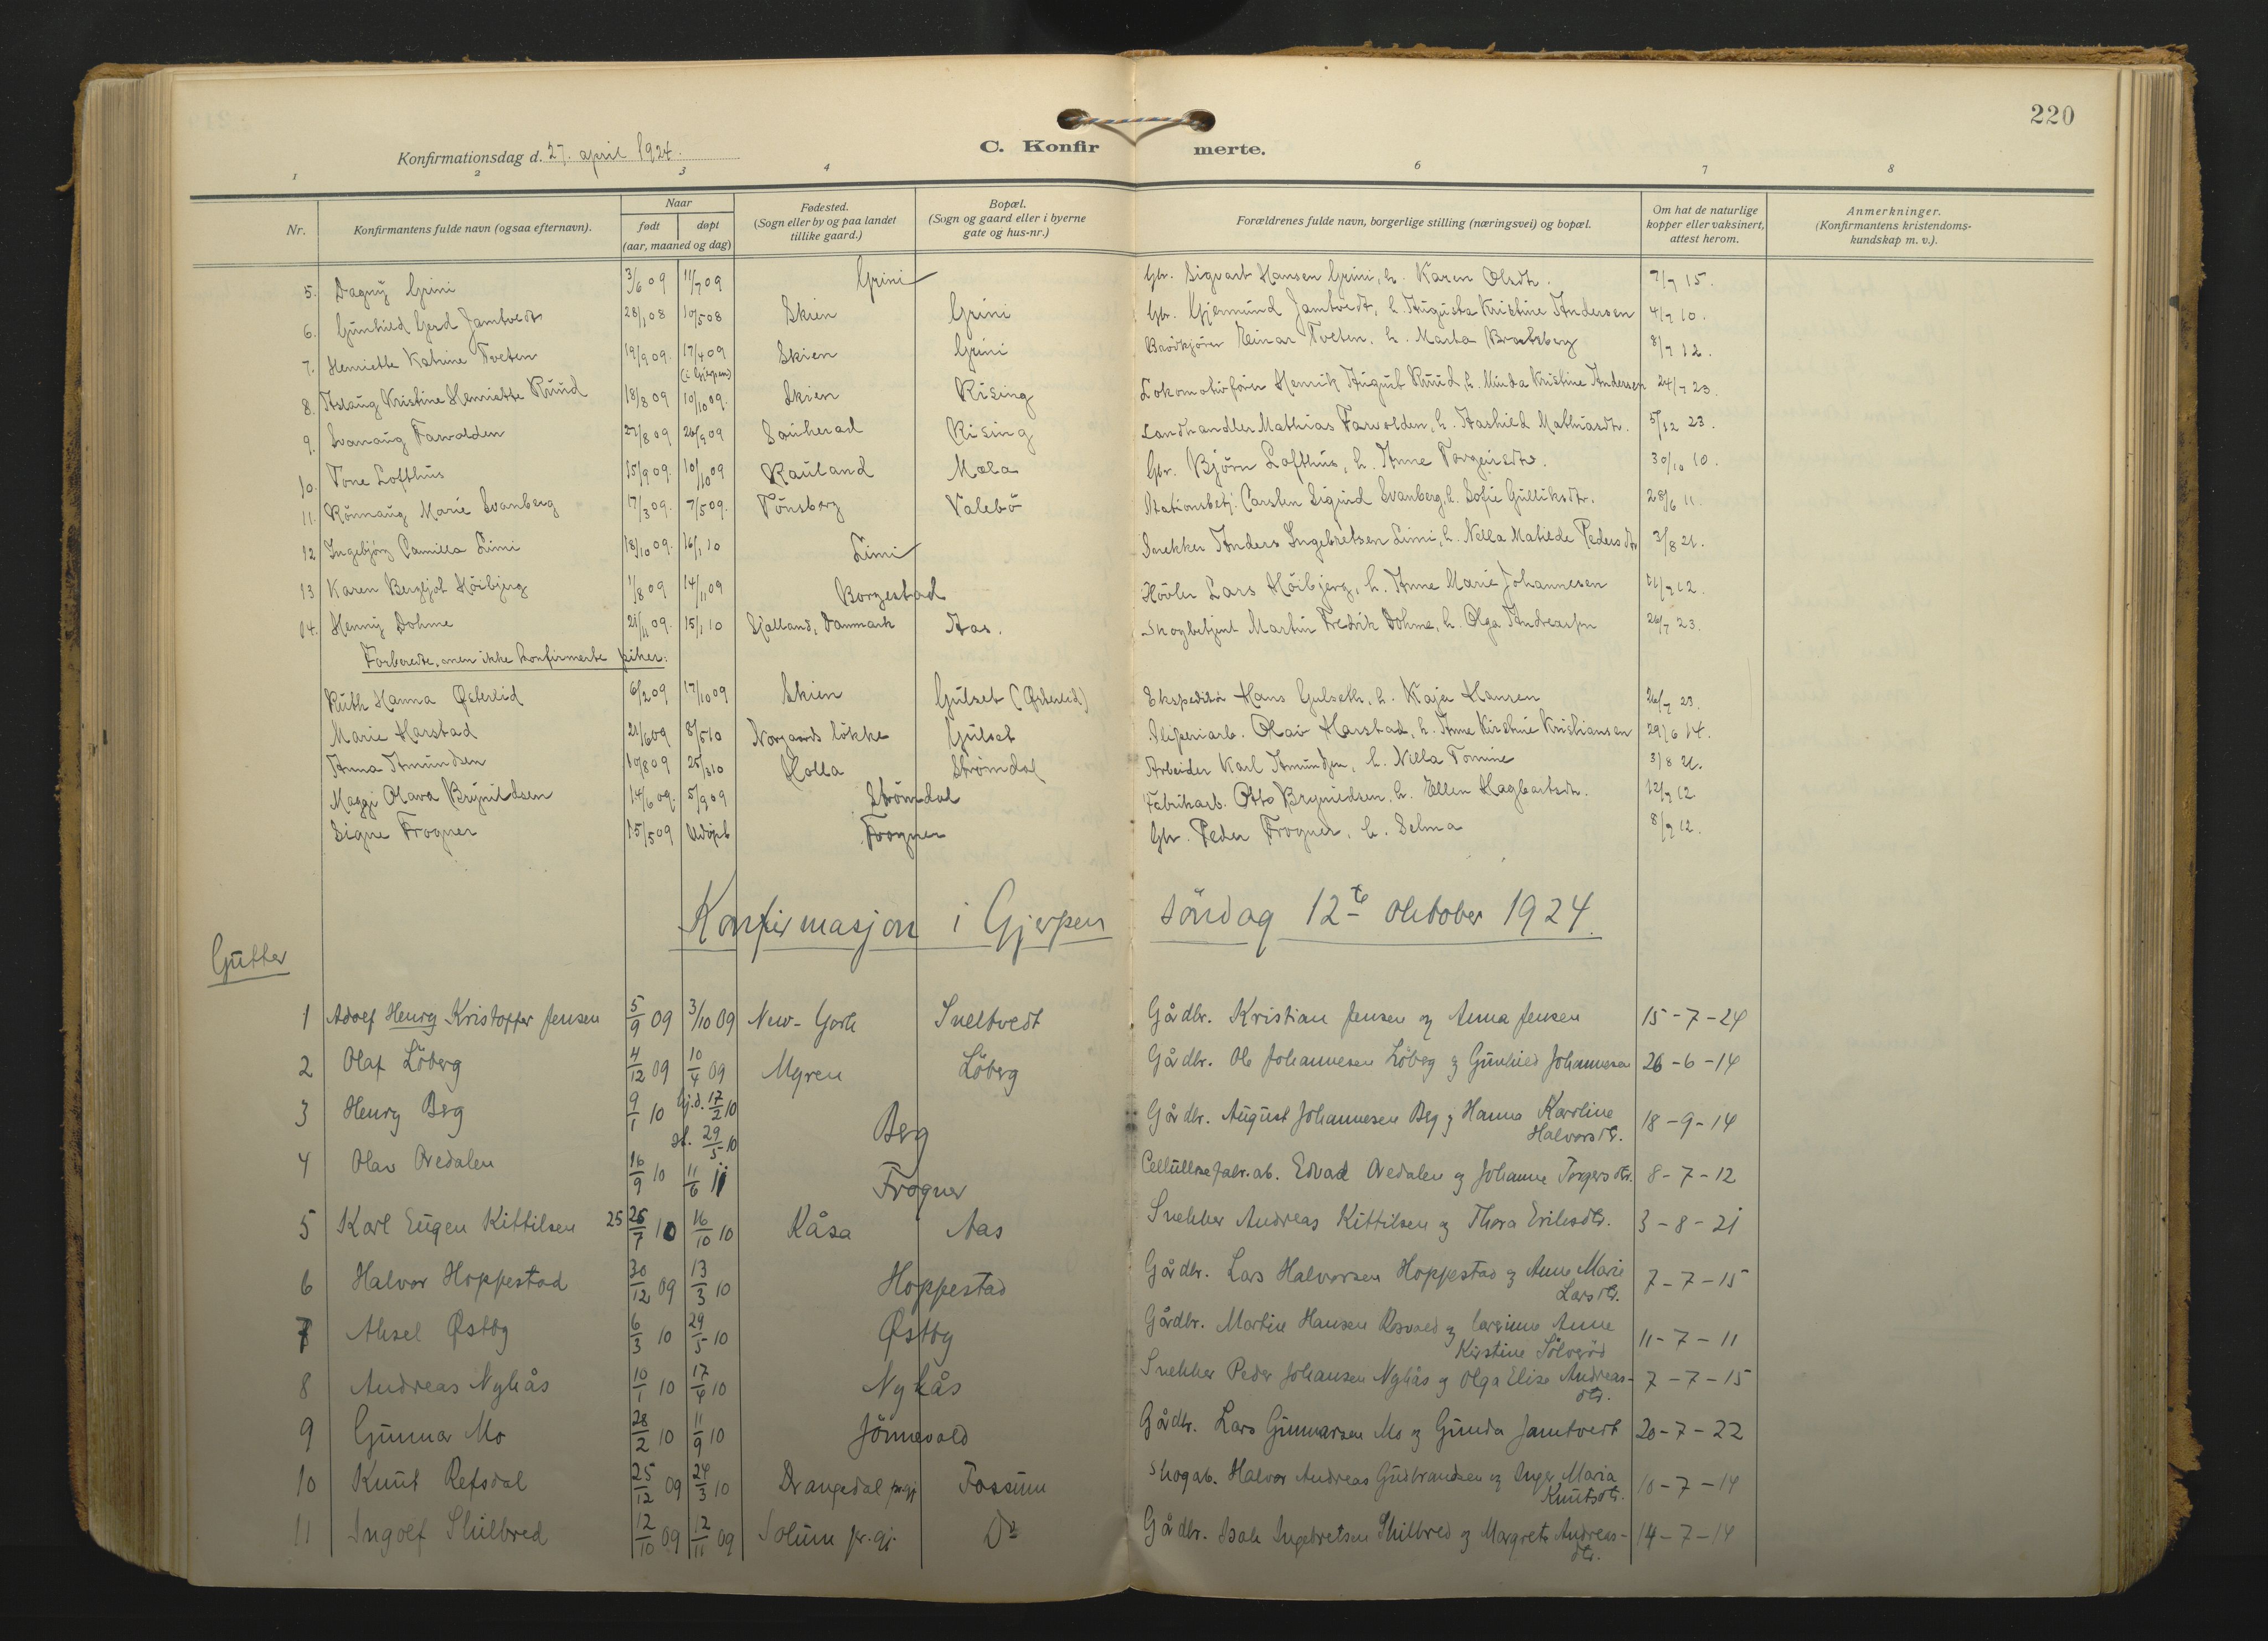 220
Konfirmationsdag d. 27. april 1924.
C. Konfirmerte.
1 2 3 4 6 7 8
Nr.
Konfirmantens fulde navn (ogsaa efternavn).
Naar
født døpt
(aar, maaned og dag)
Fødested.
(Sogn eller by og paa landet
tillike gaard.)
Bopæl.
(Sogn og gaard eller i byerne
gate og hus-nr.)
Forældrenes fulde navn, borgerlige stilling (næringsvei) og bopæl.
Om hat de naturlige
kopper eller vaksinert,
attest herom.
Anmerkninger.
(Konfirmantens kristendoms-
kundskap m. v.).
5. Dagny Grini 3/6 09 11/7 09 Grini Gbr. Sigvart Hansen Grini, h. Karen Olsdtr. 7/7 15.
6. Gunhild Gerd Jamtvedt 28/1 08 10/5 08 Skien Grini Gbr. Gjermund Jamtvedt, h. Augusta Kristine Andersen 4/7 10.
7. Henriette Katrine Tveten 19/9 09. 17/4 09 Skien Grini Einar Tveten, h. Marta Bratsberg 8/7 12.
(i Gjerpen)
8. Aslaug Kristine Henriette Ruud 18/8 09 10/10 09. Skien Rising Lokomotivfører Henrik August Ruud, h. Minda Kristine Andersen 24/7 23.
9. Svanaug Farvolden 27/8 09 26/9 09 Sauherad Rising Landhandler Mathias Farvolden, h. Aashild Mathiasdtr. 5/12 23.
10. Tone Lofthus 15/9 09. 10/10 09 Rauland Mæla Gbr. Björn Lofthus, h. Anne Torgeirsdtr. 30/10 10.
11. Rönnaug Marie Svanberg 17/3 09. 7/5 09. Tönsberg Valebö Stationsbetj. Carsten Sigurd Svanberg, h. Sofie Gulliksdtr. 28/6 11.
12 Ingebjörg Camilla Limi 18/10 09. 16/1 10 Limi Snekker Anders Ingebretsen Limi, h. Nilla Matilde Pedersdtr 3/8 21.
13 Karen Bergljot Höibjerg 1/8 09 14/11 09 Borgestad Hövler Lars Höibjerg, h. Anne Marie Johannesen 11/9 12.
14. Henny Dohme 21/11 09. 15/1 10 Sjælland, Danmark Aas. Skogbetjent Martin Fredrik Dohme, h. Olga Andreasen 26/7 23.
Forberedte, men ikke konfirmerte piker:
Ruth Hanna Østerlid 6/2 09 17/10 09 Skien Gulset (Østerlid) Ekspeditör Hans Gulseth, h. Kaja Hansen 26/7 23.
Marie Harstad 21/6 09 8/5 10 Norgaards lökke Gulset Sliperiarb. Olav Harstad, h. Anne Kirstine Kristiansen 29/6 14.
Anna Amundsen 10/8 09 25/3 10 Holla Strömdal Arbeider Karl Amundsen, h. Nilla Tomine 3/8 21.
Maggi Olava Brynildsen 14/6 09. 5/9 09 Strömdal Fabrikarb. Otto Brynildsen, h. Ellen Hagbartsdtr. 12/9 12
Signe Frogner 15/5 09 Udöpt Frogner Gbr. Peder Frogner, h. Selma 8/9 12.
Konfirmasjon i Gjerpen söndag 12te oktober 1924.
Gutter
1 Adolf Henry Kristoffer Jensen 5/9 09 3/10 09 New-York Sneltvedt Gårdbr. Kristian Jensen og Anna Jensen 15-7-24
2 Olaf Löberg 4/12 09 10/4 09 Myren Löberg Gårdbr. Ole Johannesen Löberg og Gunhild Johannesen 26-6-14
3 Henry Berg 9/1 10 hj.d. 17/2 10 Berg Gårdbr. August Johannesen Berg og Hanna Karoline 18-9-14
st. 29/5 10 Halvorsdtr.
4 Olav Ovedalen 16/9 10 11/6 11 Frogner Cellullosefabr.ab. Edvad Ovedalen og Johanne Torgersdtr. 8-7-12
5 Karl Eugen Kittilsen 25 25/7 10 16/10 10 Kåsa Aas Snekker Andreas Kittilsen og Thora Eriksdtr. 3-8-21
6 Halvor Hoppestad 30/12 09 13/3 10 Hoppestad Gårdbr. Lars Halvorsen Hoppestad og Anne Marie 7-7-15
Larsdtr.
7 Aksel Østby 6/3 10 29/5 10 Østby Gårdbr. Martin Hansen og Anne 11-7-11
Kirstine
8 Andreas Nykås 10/1 10 17/4 10 Nykås Snekker Peder Johansen Nykås og Olga Elise Andreas- 7-7-15
dtr.
9 Gunnar Mo 28/2 10 11/9 10 Jönnevald Gårdbr. Lars Gunnarsen Mo og Gunda Jamtvert 20-7-22
10 Knut Refsdal 25/12 09 24/3 10 Drangedal pr.gj. Fossum Skogab. Halvor Andreas Gudbrandsen og Inger Maria 10-7-14
Knutsdtr.
11 Ingolf Skilbred 12/10 09 12/11 09 Solum pr.gj. Do Gårdbr. Isak Ingebretsen Skilbred og Margrete Andreas- 14-7-14
dtr.